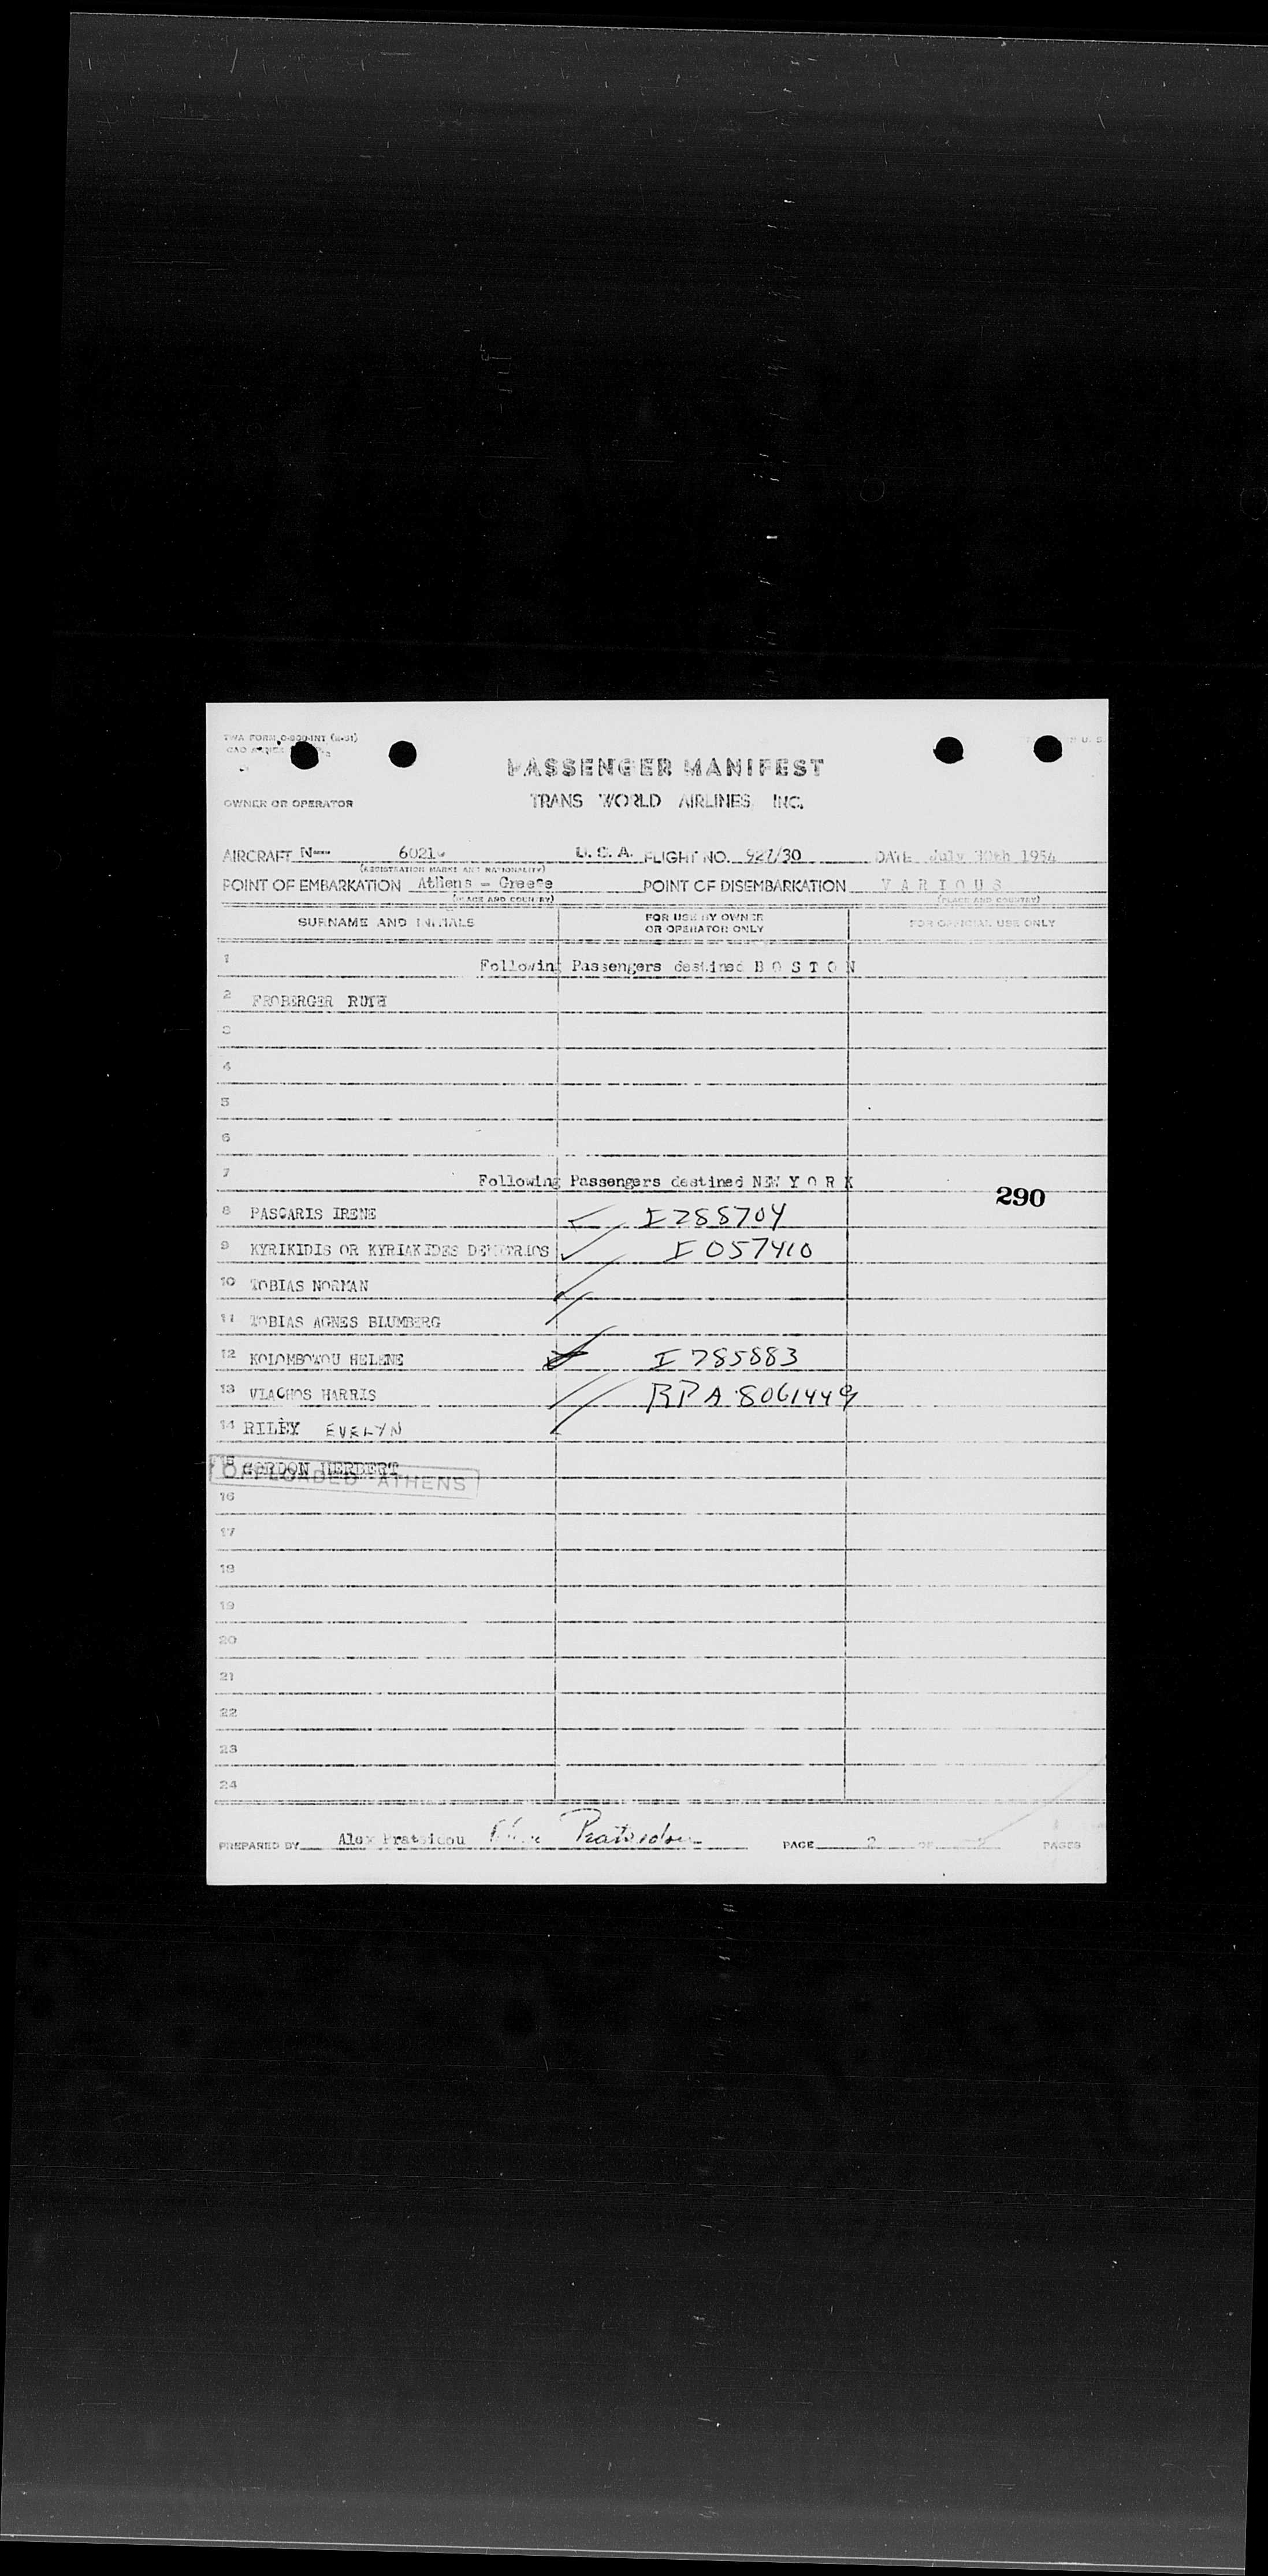 TWA FORM
PASSENGER MANIFEST
OWNER OR OPERATOR TRANS WORLD AIRLINES, INC.
AIRCRAFT N-- U. S. A. FLIGHT NO. /30 DATE July 30th 1954
(REGISTRATION MARKS AND NATIONALITY)
POINT OF EMBARKATION Athens - Greece POINT OF DISEMBARKATION V A R I O U S
(PLACE AND COUNTRY) (PLACE AND COUNTRY)
SURNAME AND INITIALS FOR USE BY OWNER OR OPERATOR ONLY FOR OFFICIAL USE ONLY
1 Following Passengers destined B O S T O N
2 FROBERGER RUTH
3
4
5
6
7 Following Passengers destined NEW Y O R K
290
8 PASCARIS IRENE I288704
9 KYRIKIDIS OR KYRIAKIDES DEMETRIOS I 057410
10 TOBIAS NORMAN
11 TOBIAS AGNES BLUMBERG
12 HELENE I 785883
13 VLACHOS HARRIS RPA 8061449
14 RILEY EVELYN
15 GORDON HERBERT
OFFLOADED ATHENS
16
17
18
19
20
21
22
23
24
PREPARED BY Alex Pratsidou PAGE 2 OF PAGES